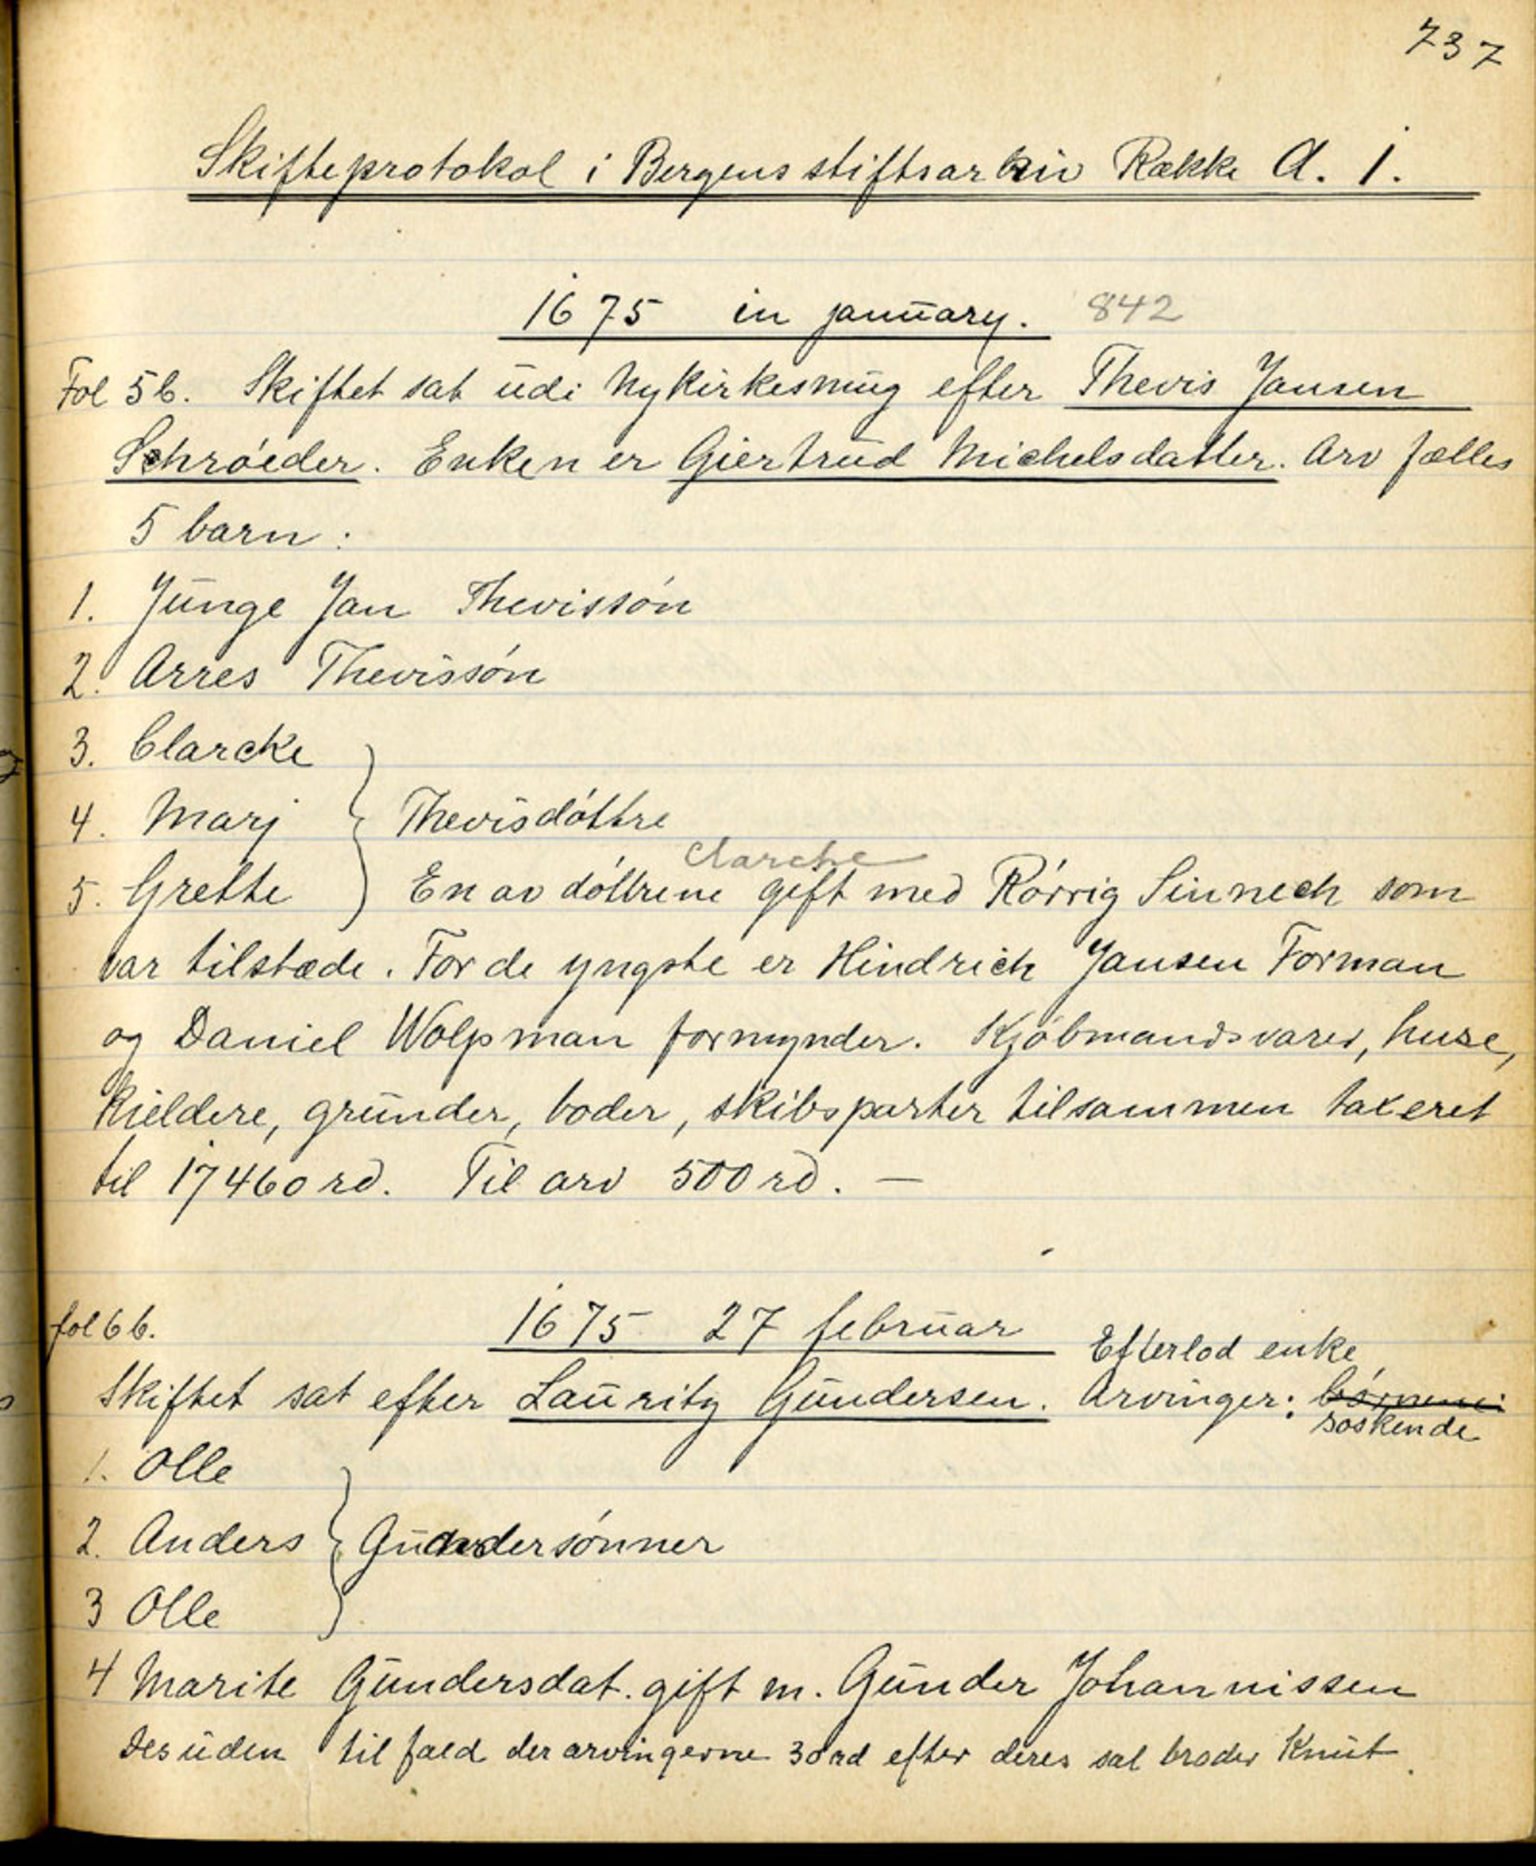 737
Skifteprotokol i Bergens stiftsarkiv Række A. 1.
1675 in january. 842
Fol 5b. Skiftet sat udi Nykirkesmug efter Thevis Jansen
Schróeder. Enken er Giertrud Michelsdatter. Arv fælles
5 barn:
1. Junge Jan Thevissón
2. Arres Thevissón
3. Clarcke
4. Marj } Thevisdóttre
Clarcke
5. Grette En av dóttrene gift med Rórrig Sinnech som
var tilstæde. For de yngste er Hindrich Jansen Forman
og Daniel Wolpsman formynder. Kjóbmandsvarer, huse,
kieldere, grunder, boder, skibsparter tilsammen taxeret
til 17460 rd. Til arv 500 rd. —
fol 6b. 1675 27 februar
Efterlod enke
Skiftet sat efter Lauritz Gundersen. Arvinger: børnene:
soskende
1. Olle
2. Anders } Gundersónner
3 Olle
4 Marite Gundersdat. gift m. Gunder Johannissen
desuden tilfald der arvingerne 30 rd efter deres sal broder Knut.